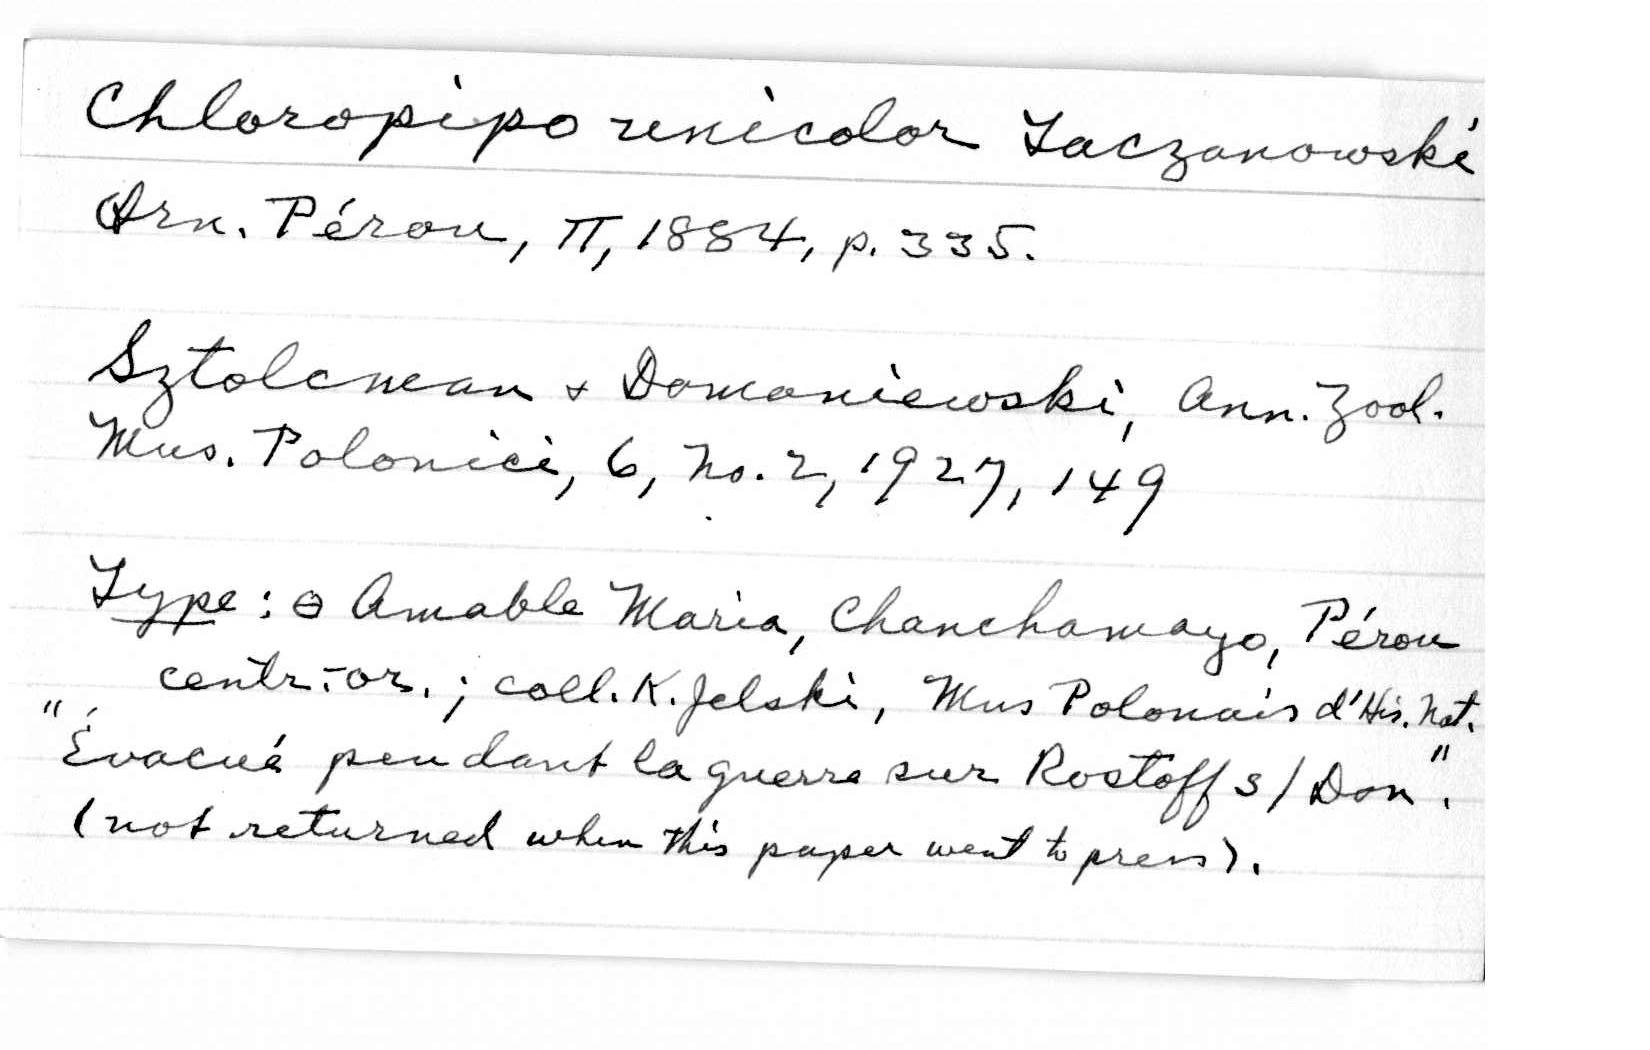 Chloropipo unicolor Taczanowski
Orn. Pérou, II, 1884, p. 335.
Sztolcman + Domaniewski, Ann. Zool.
Mus. Polonici, 6, no. 2, 1927, 149
Type: ⊖ Amable Maria, Chanchamayo, Pérou
centr.-or.; coll. K. Jelski, Mus Polonais d'His. Nat.
"Évacué pendant la guerre sur Rostoff s/Don".
(not returned when this paper went to press).